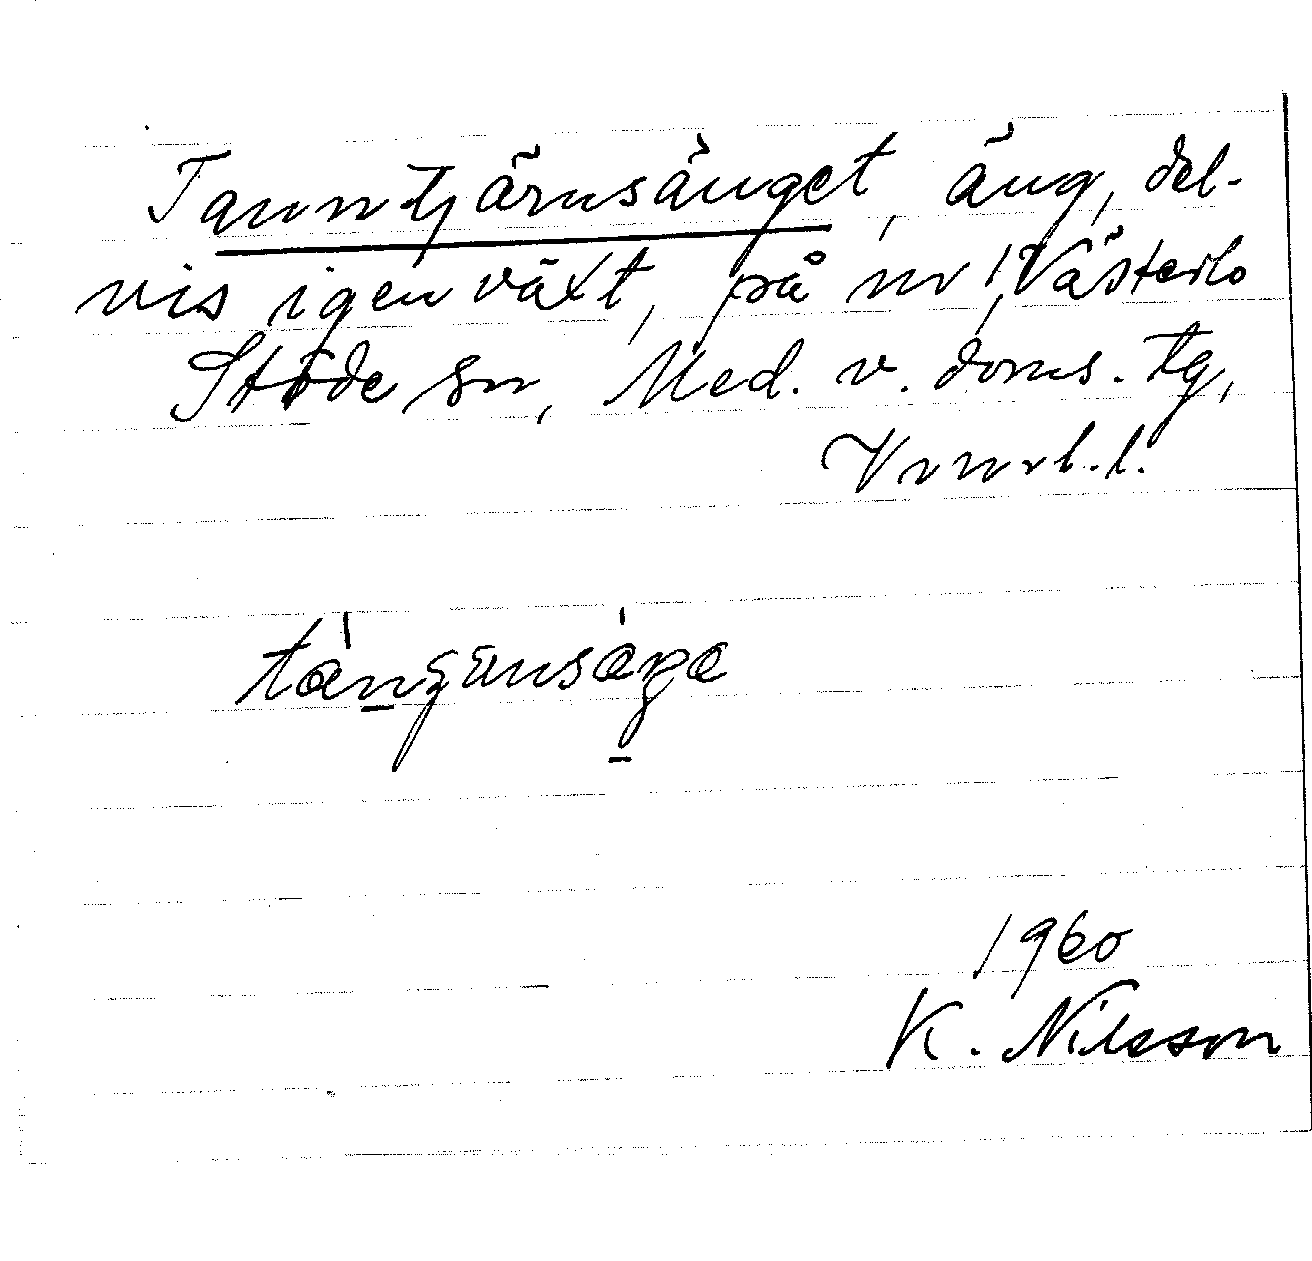 Tanntjärnsänget, äng, del-
vis igenväxt, på nr 1 Västerlo
Stöde sn, Med. v. doms. tg,
Vnrrl. l.
1960
K. Nilsson